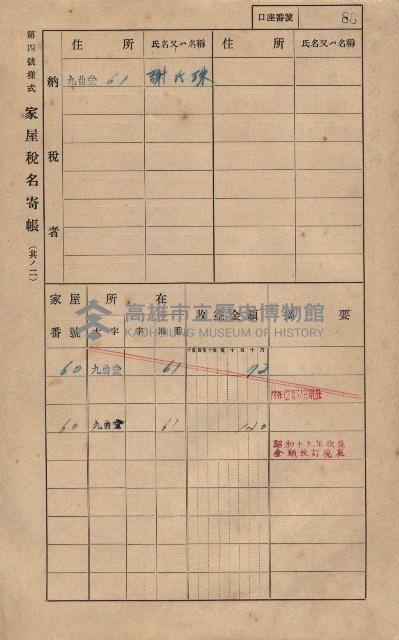 口座番號 88
第四號樣式
家屋稅名寄帳
(其ノ二)
納稅者
住所 氏名又ハ名稱 住所 氏名又ハ名稱
九曲堂 61 謝氏珠
家屋番號 所在 收益金額 摘要
大字 字 地番
60 九曲堂 61 72
60 九曲堂 61 120
昭和十九年收益
金額改訂現在
高雄市立歷史博物館
KAOHSIUNG MUSEUM OF HISTORY